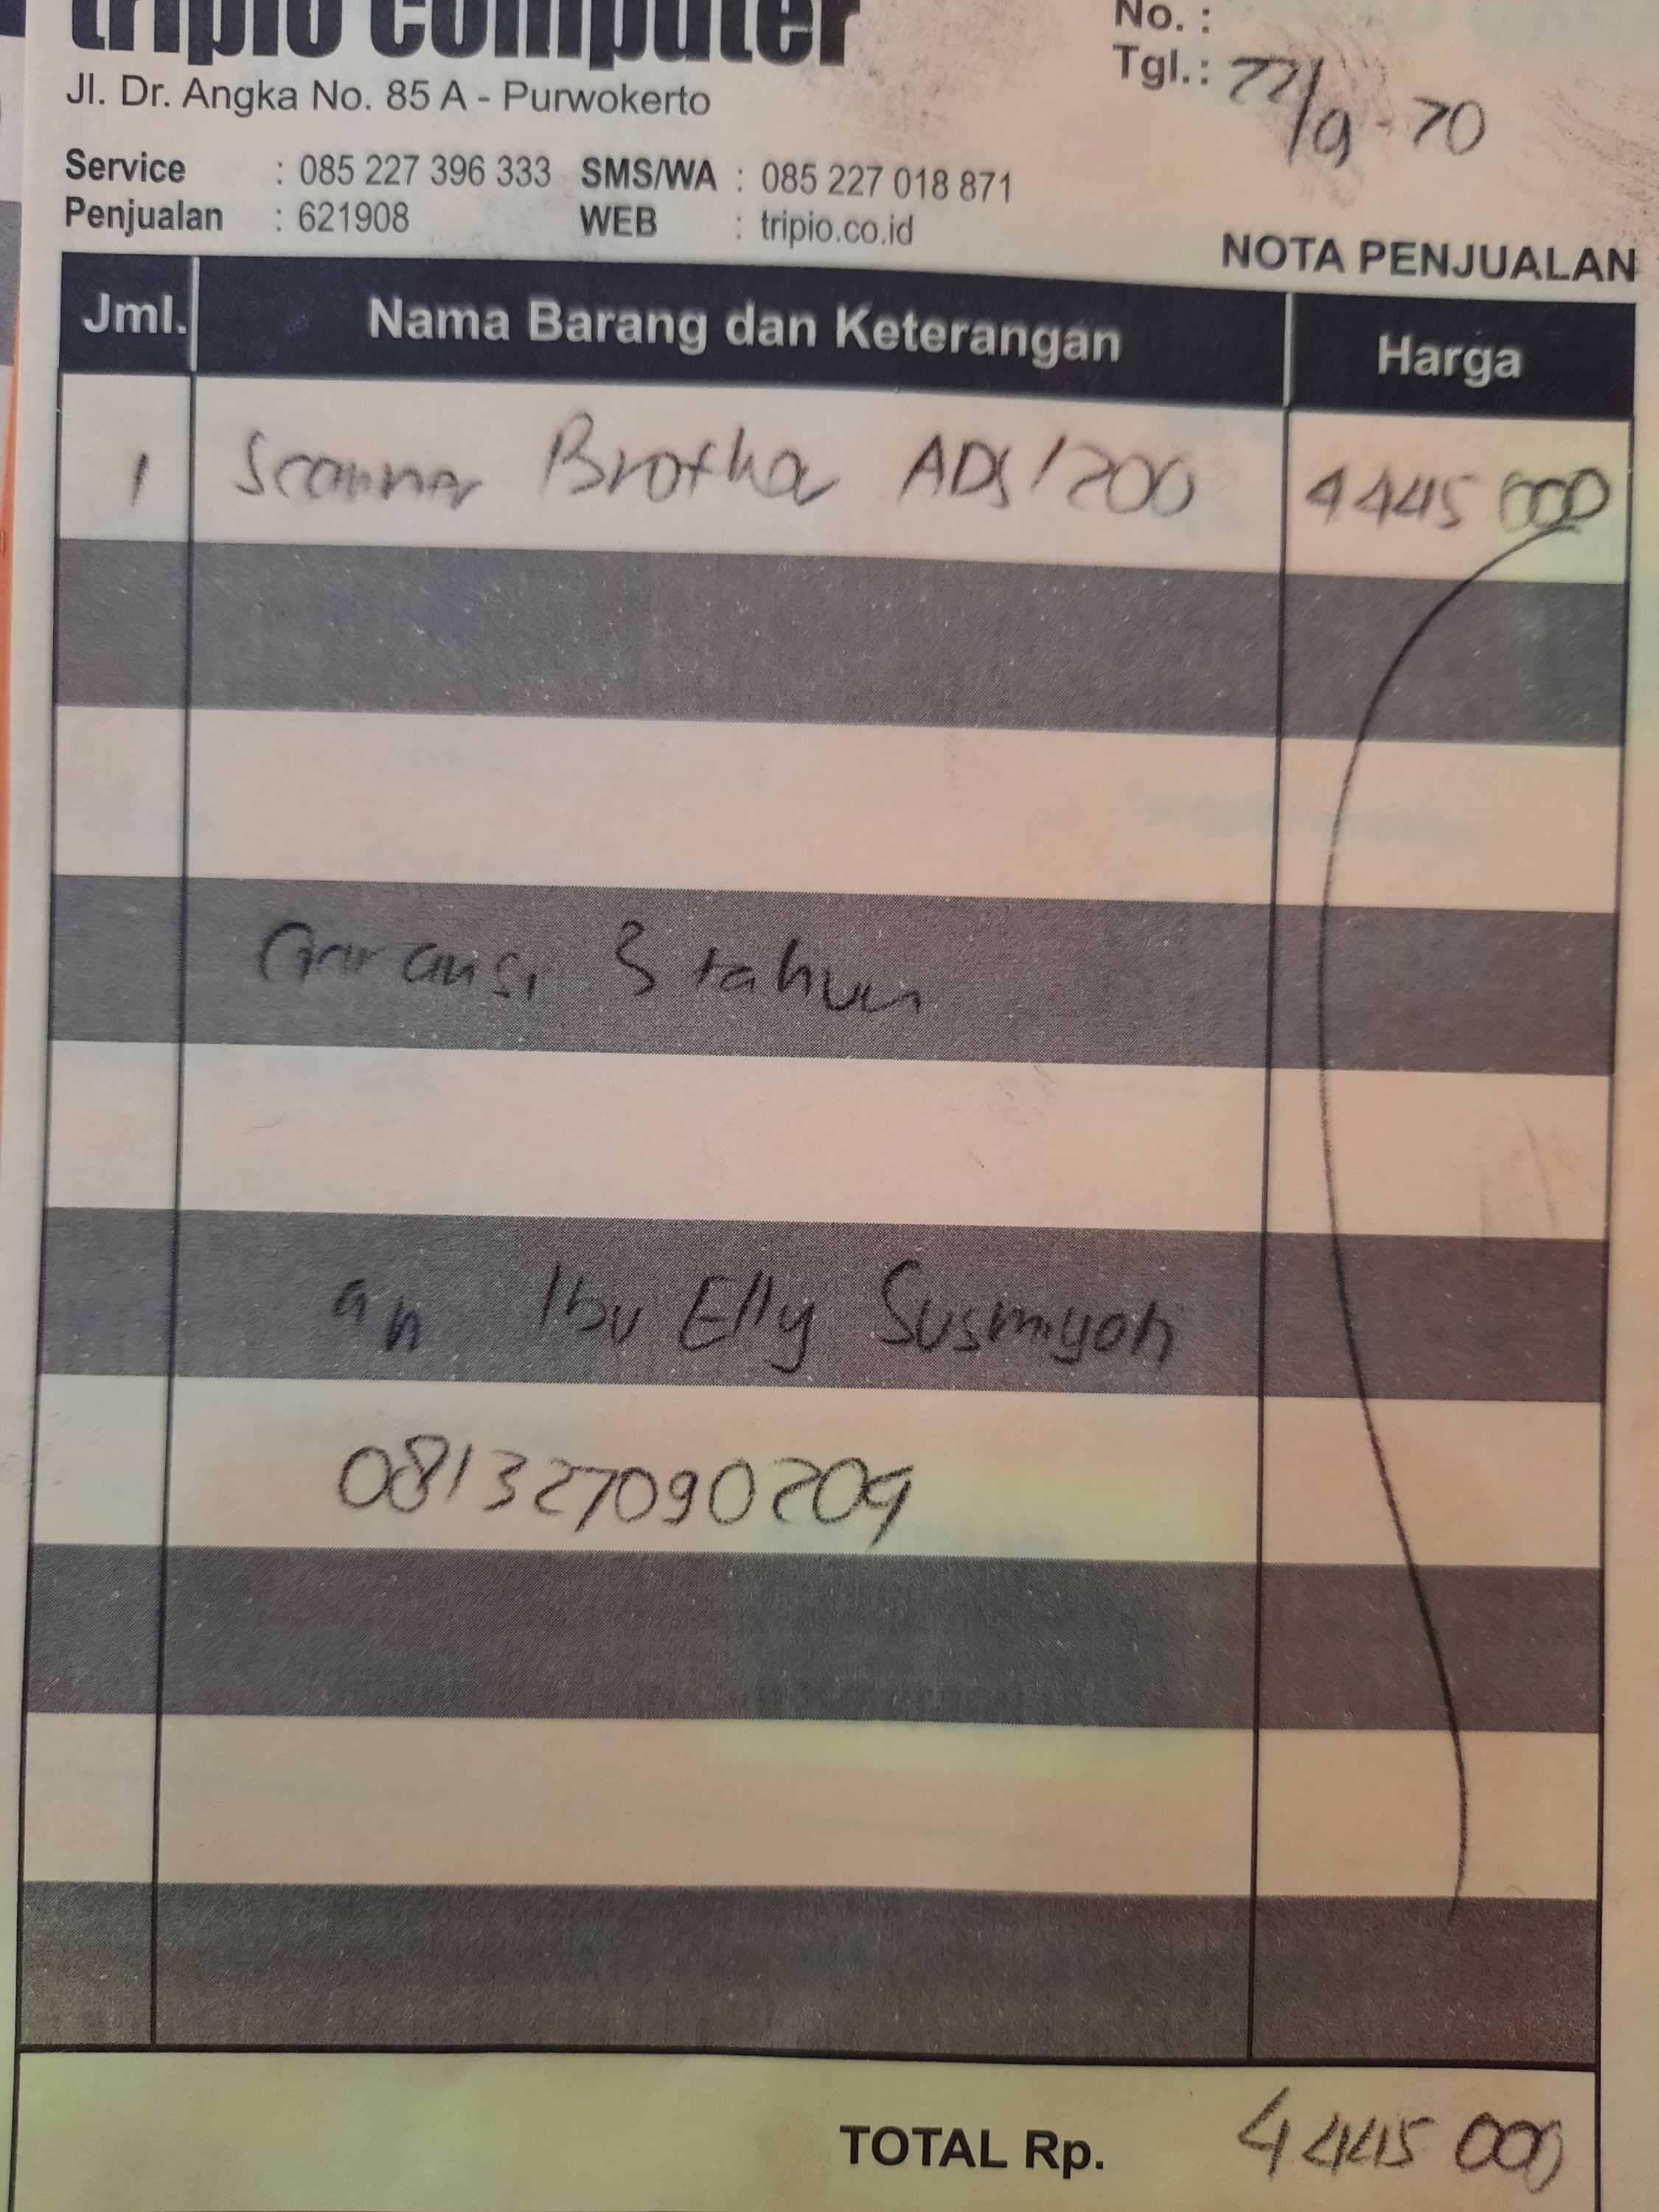 tripio computer
Jl. Dr. Angka No. 85 A - Purwokerto
No. :
Tgl. : 22/9-20
Service : 085 227 396 333 SMS/WA : 085 227 018 871
Penjualan : 621908 WEB : tripio.co.id
NOTA PENJUALAN
Jml. Nama Barang dan Keterangan Harga
1 Scanner Brother ADS 1200 4445 000
Garansi 3 tahun
an Ibu Elly Susmiyah
081327090209
TOTAL Rp. 4445 000